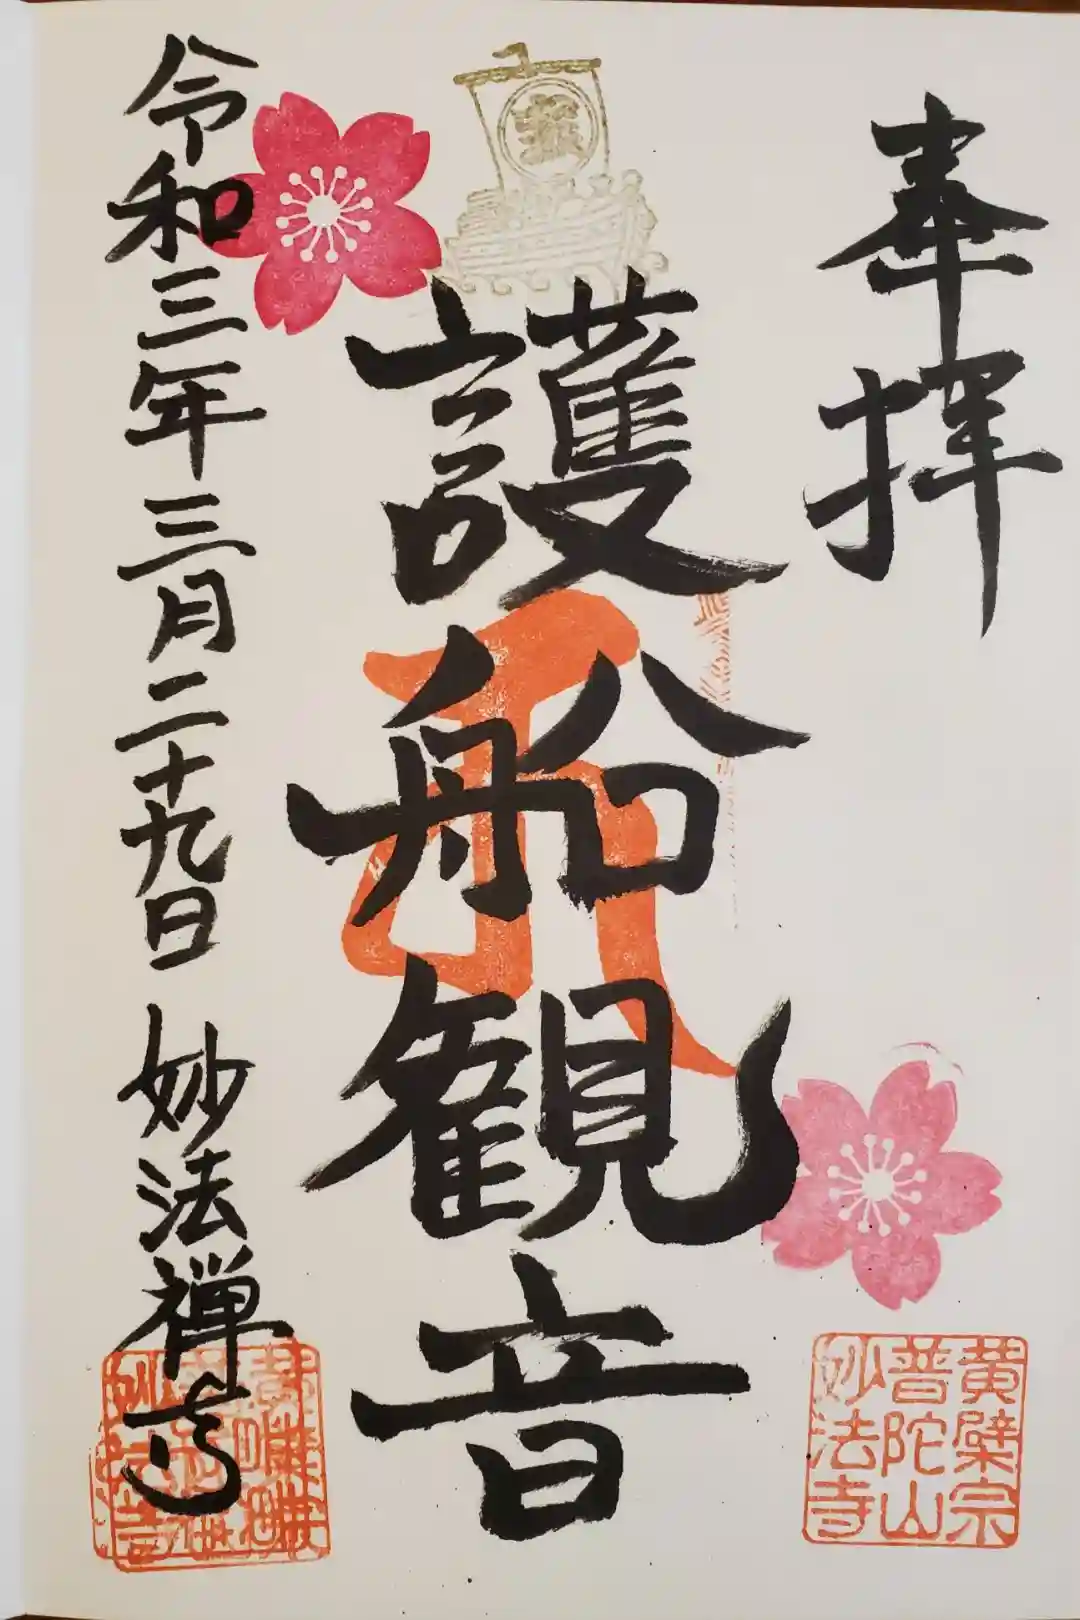 奉拝
護船観音
令和三年三月二十九日 妙法禅寺
黄檗宗
普陀山
妙法寺